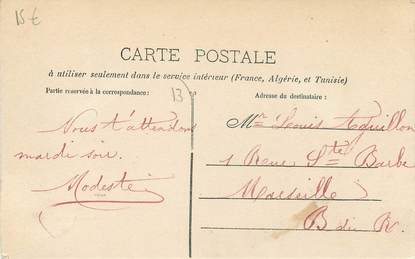 15€
CARTE POSTALE
à utiliser seulement dans le service intérieur (France, Algérie, et Tunisie)
Partie réservée à la correspondance:
Adresse du destinataire:
13
Mr Louis Aguillon
Nous t'attendons
1 Rue Ste Barbe
mardi soir.
Marseille
Modeste
B du R.